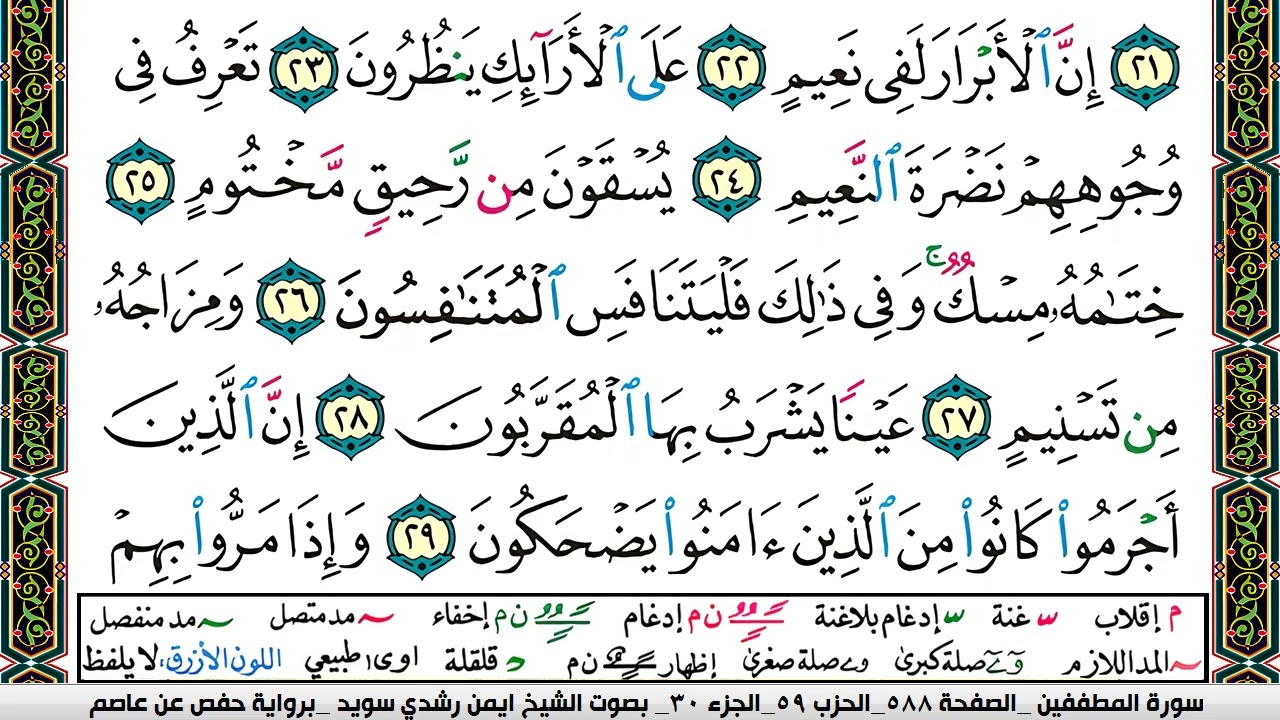 ٢١ إِنَّ ٱلْأَبْرَارَ لَفِى نَعِيمٍ ٢٢ عَلَى ٱلْأَرَآئِكِ يَنظُرُونَ ٢٣ تَعْرِفُ فِى
وُجُوهِهِمْ نَضْرَةَ ٱلنَّعِيمِ ٢٤ يُسْقَوْنَ مِن رَّحِيقٍ مَّخْتُومٍ ٢٥
خِتَـٰمُهُۥ مِسْكٌ ۚ وَفِى ذَٰلِكَ فَلْيَتَنَافَسِ ٱلْمُتَنَـٰفِسُونَ ٢٦ وَمِزَاجُهُۥ
مِن تَسْنِيمٍ ٢٧ عَيْنًا يَشْرَبُ بِهَا ٱلْمُقَرَّبُونَ ٢٨ إِنَّ ٱلَّذِينَ
أَجْرَمُوا۟ كَانُوا۟ مِنَ ٱلَّذِينَ ءَامَنُوا۟ يَضْحَكُونَ ٢٩ وَإِذَا مَرُّوا۟ بِهِمْ
م إقلاب غنة إدغام بلاغنة ن م إدغام ن م إخفاء مد متصل مد منفصل
المد اللازم صلة كبرى صلة صغرى إظهار ن م قلقلة اوى طبيعي اللون الأزرق، لا يلفظ
سورة المطففين _الصفحة ٥٨٨_الحزب ٥٩_الجزء ٣٠_ بصوت الشيخ ايمن رشدي سويد _برواية حفص عن عاصم